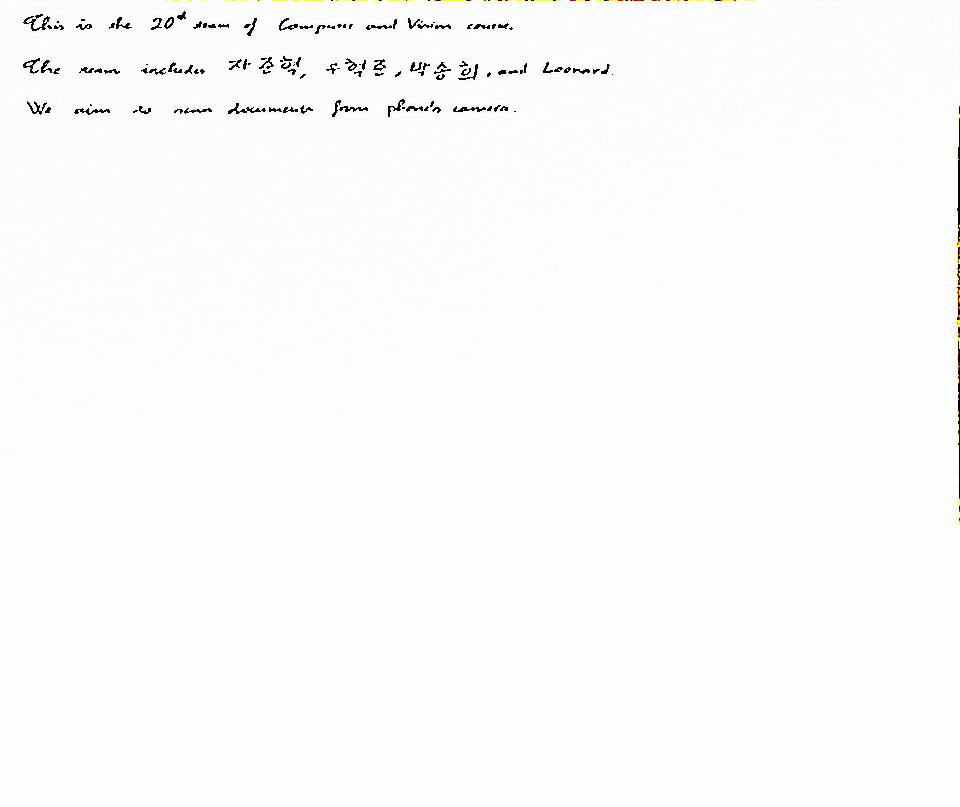 This is the 20th team of Computer and Vision course.
The team includes 차준혁, 우혁준, 박송희, and Leonard.
We aim to scan documents from phone's camera.